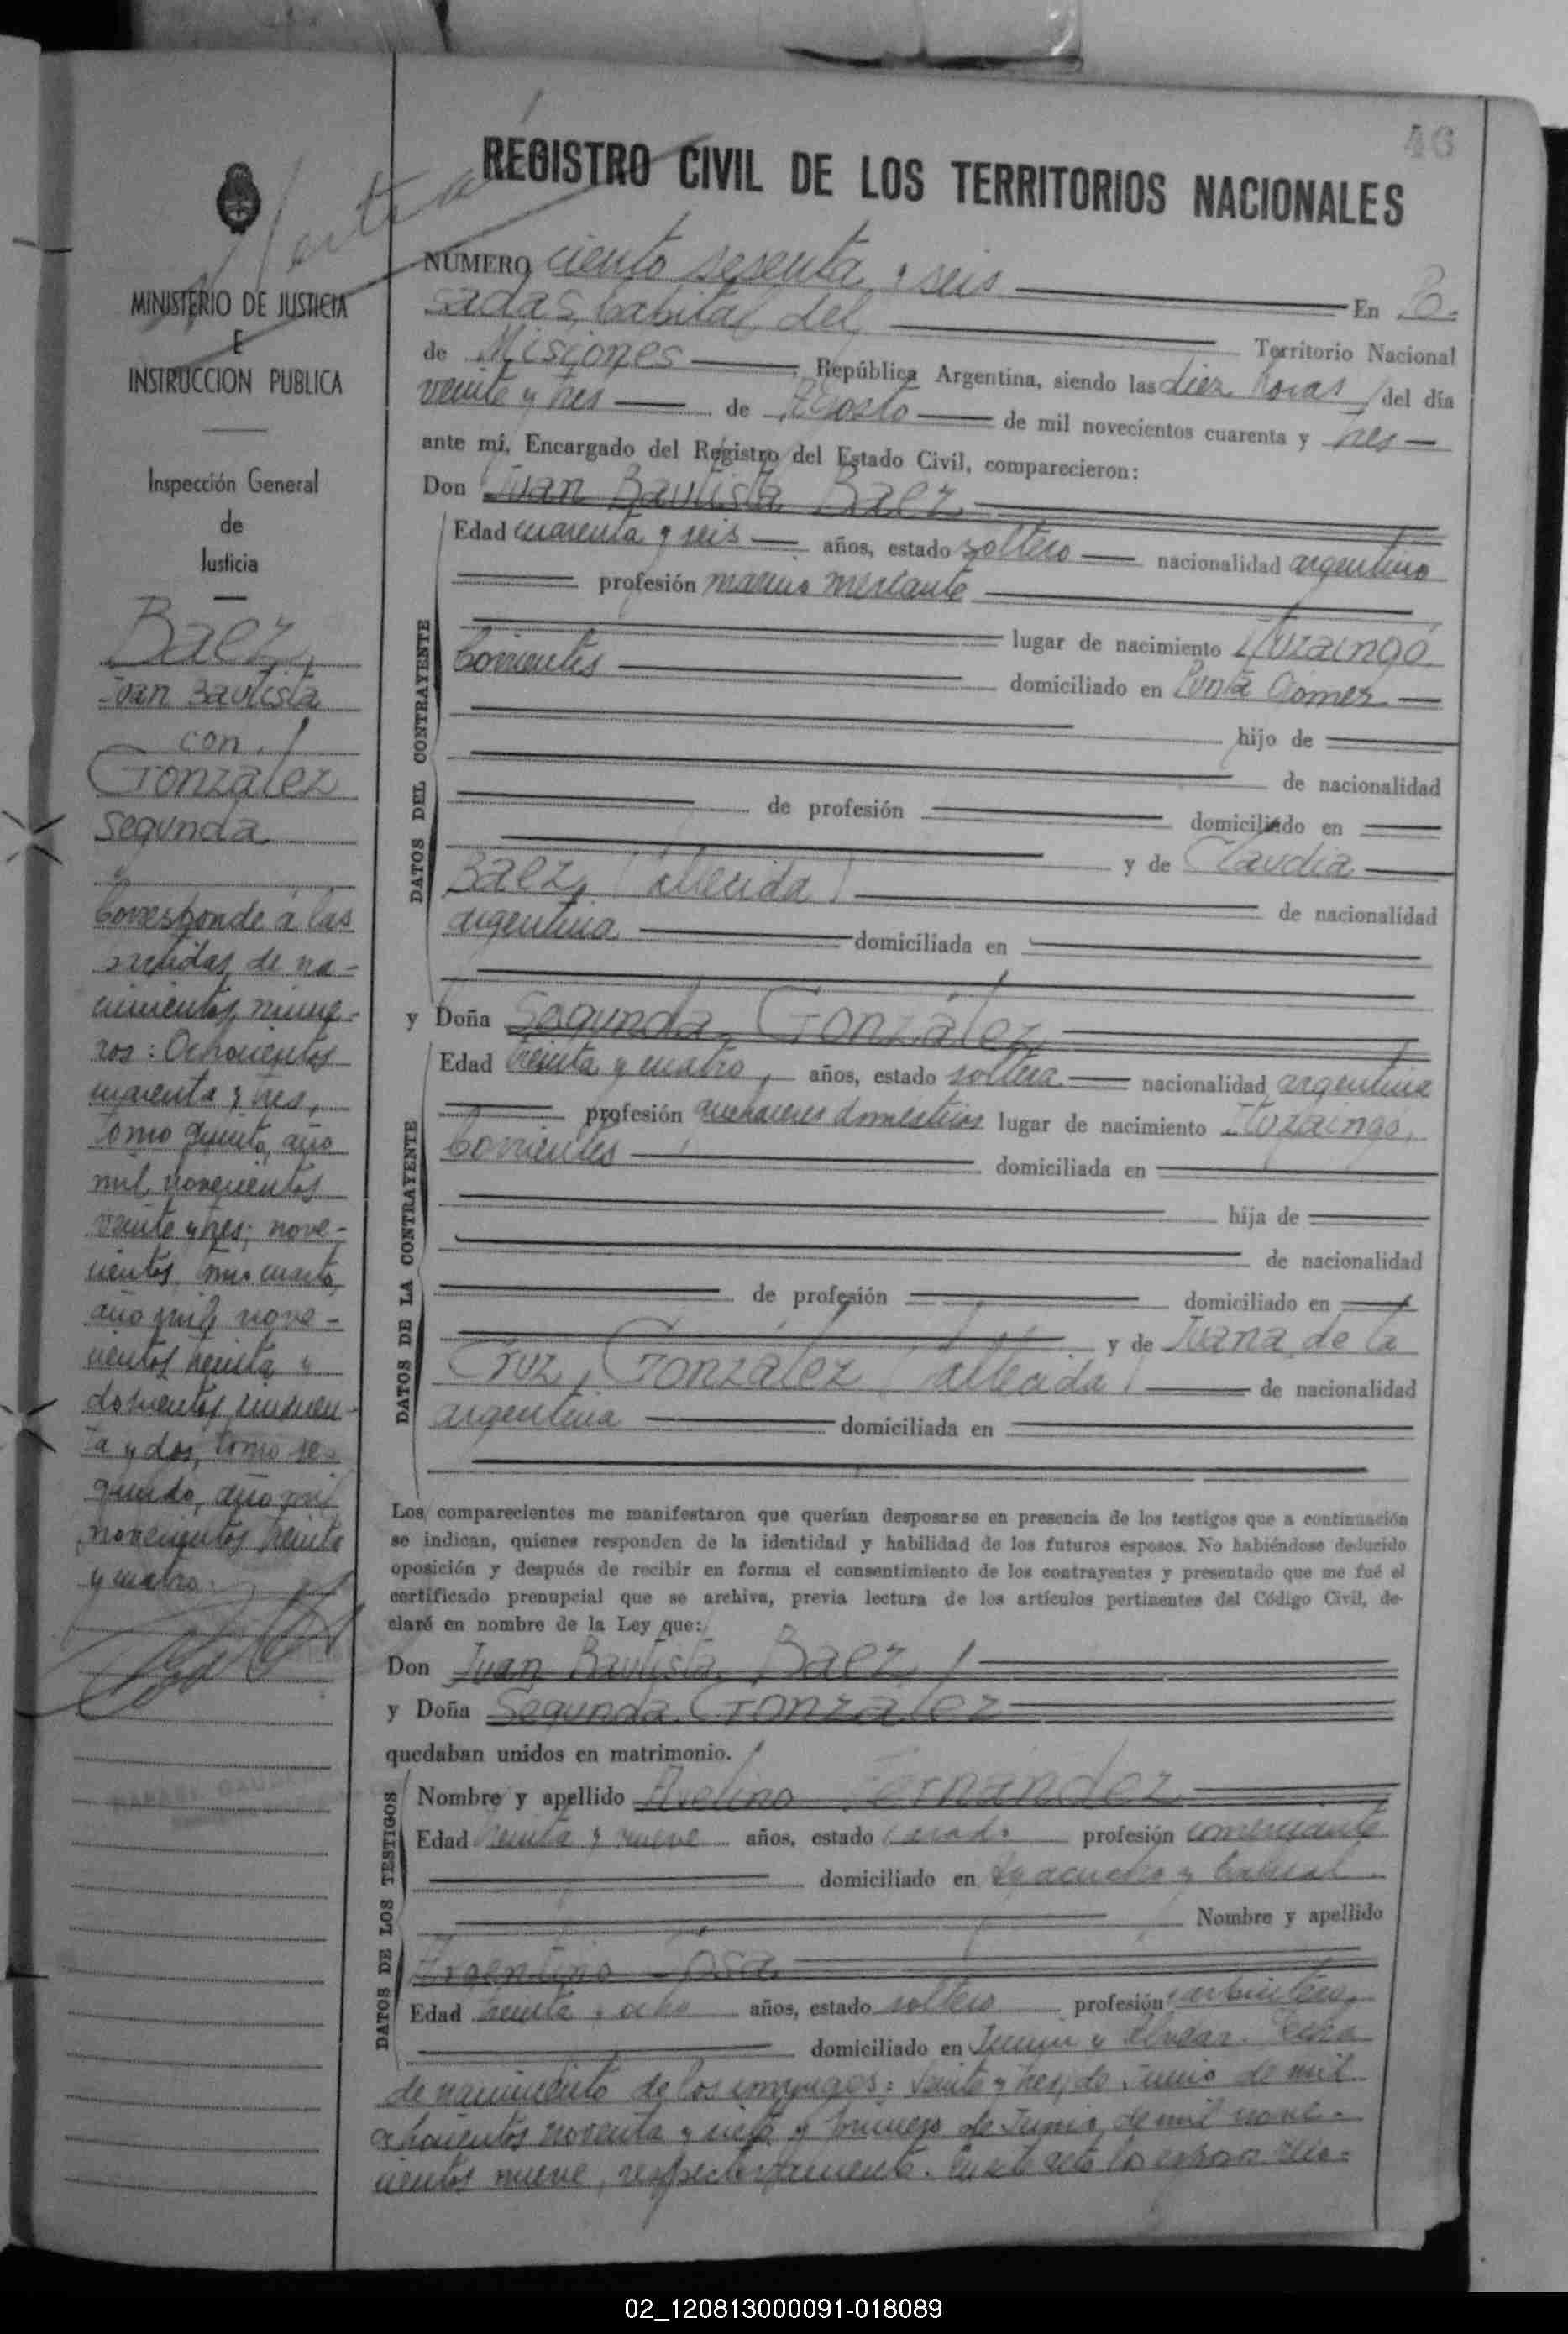 46
REGISTRO CIVIL DE LOS TERRITORIOS NACIONALES
MINISTERIO DE JUSTICIA
E
INSTRUCCION PUBLICA
Inspección General
de
Justicia
Baez,
Juan Bautista
con
González
Segunda
Corresponde á las
partidas de na-
cimientos núme-
ros: Ochocientos
cuarenta y tres,
tomo quinto, año
mil novecientos
veinte y tres; nove-
cientos, tomo cuarto,
año mil nove-
cientos treinta y
doscientos cincuen-
ta y dos, tomo se-
gundo, año mil
novecientos treinta
y cuatro.
NUMERO ciento sesenta y seis En Po-
sadas, Capital del Territorio Nacional
de Misiones, República Argentina, siendo las diez horas del día
veinte y tres de Agosto de mil novecientos cuarenta y tres
ante mí, Encargado del Registro del Estado Civil, comparecieron:
Don Juan Bautista Baez
DATOS DEL CONTRAYENTE
Edad cuarenta y seis años, estado soltero nacionalidad argentino
profesión marino mercante
lugar de nacimiento Ituzaingó
Corrientes domiciliado en Punta Gomez
hijo de
de nacionalidad
de profesión domiciliado en
y de Claudia
Baez, (fallecida) de nacionalidad
argentina domiciliada en
y Doña Segunda González
DATOS DE LA CONTRAYENTE
Edad treinta y cuatro, años, estado soltera nacionalidad argentina
profesión quehaceres domesticos lugar de nacimiento Ituzaingó,
Corrientes domiciliada en
hija de
de nacionalidad
de profesión domiciliado en
y de Juana de la
Cruz González (fallecida) de nacionalidad
argentina domiciliada en
Los comparecientes me manifestaron que querían desposarse en presencia de los testigos que a continuación
se indican, quienes responden de la identidad y habilidad de los futuros esposos. No habiéndose deducido
oposición y después de recibir en forma el consentimiento de los contrayentes y presentado que me fué el
certificado prenupcial que se archiva, previa lectura de los artículos pertinentes del Código Civil, de-
claré en nombre de la Ley que:
Don Juan Bautista Baez
y Doña Segunda González
quedaban unidos en matrimonio.
DATOS DE LOS TESTIGOS
Nombre y apellido Avelino Fernández
Edad treinta y nueve años, estado casado profesión comerciante
domiciliado en Ayacucho y Cabral
Nombre y apellido
Argentino Sosa
Edad treinta y ocho años, estado soltero profesión carpintero,
domiciliado en Junín y Alvear. Fecha
de nacimiento de los conyuges: Veinte y tres de Junio de mil
ochocientos noventa y siete y primero de Junio de mil nove-
cientos nueve, respectivamente. En este acto los esposos
02_120813000091-018089